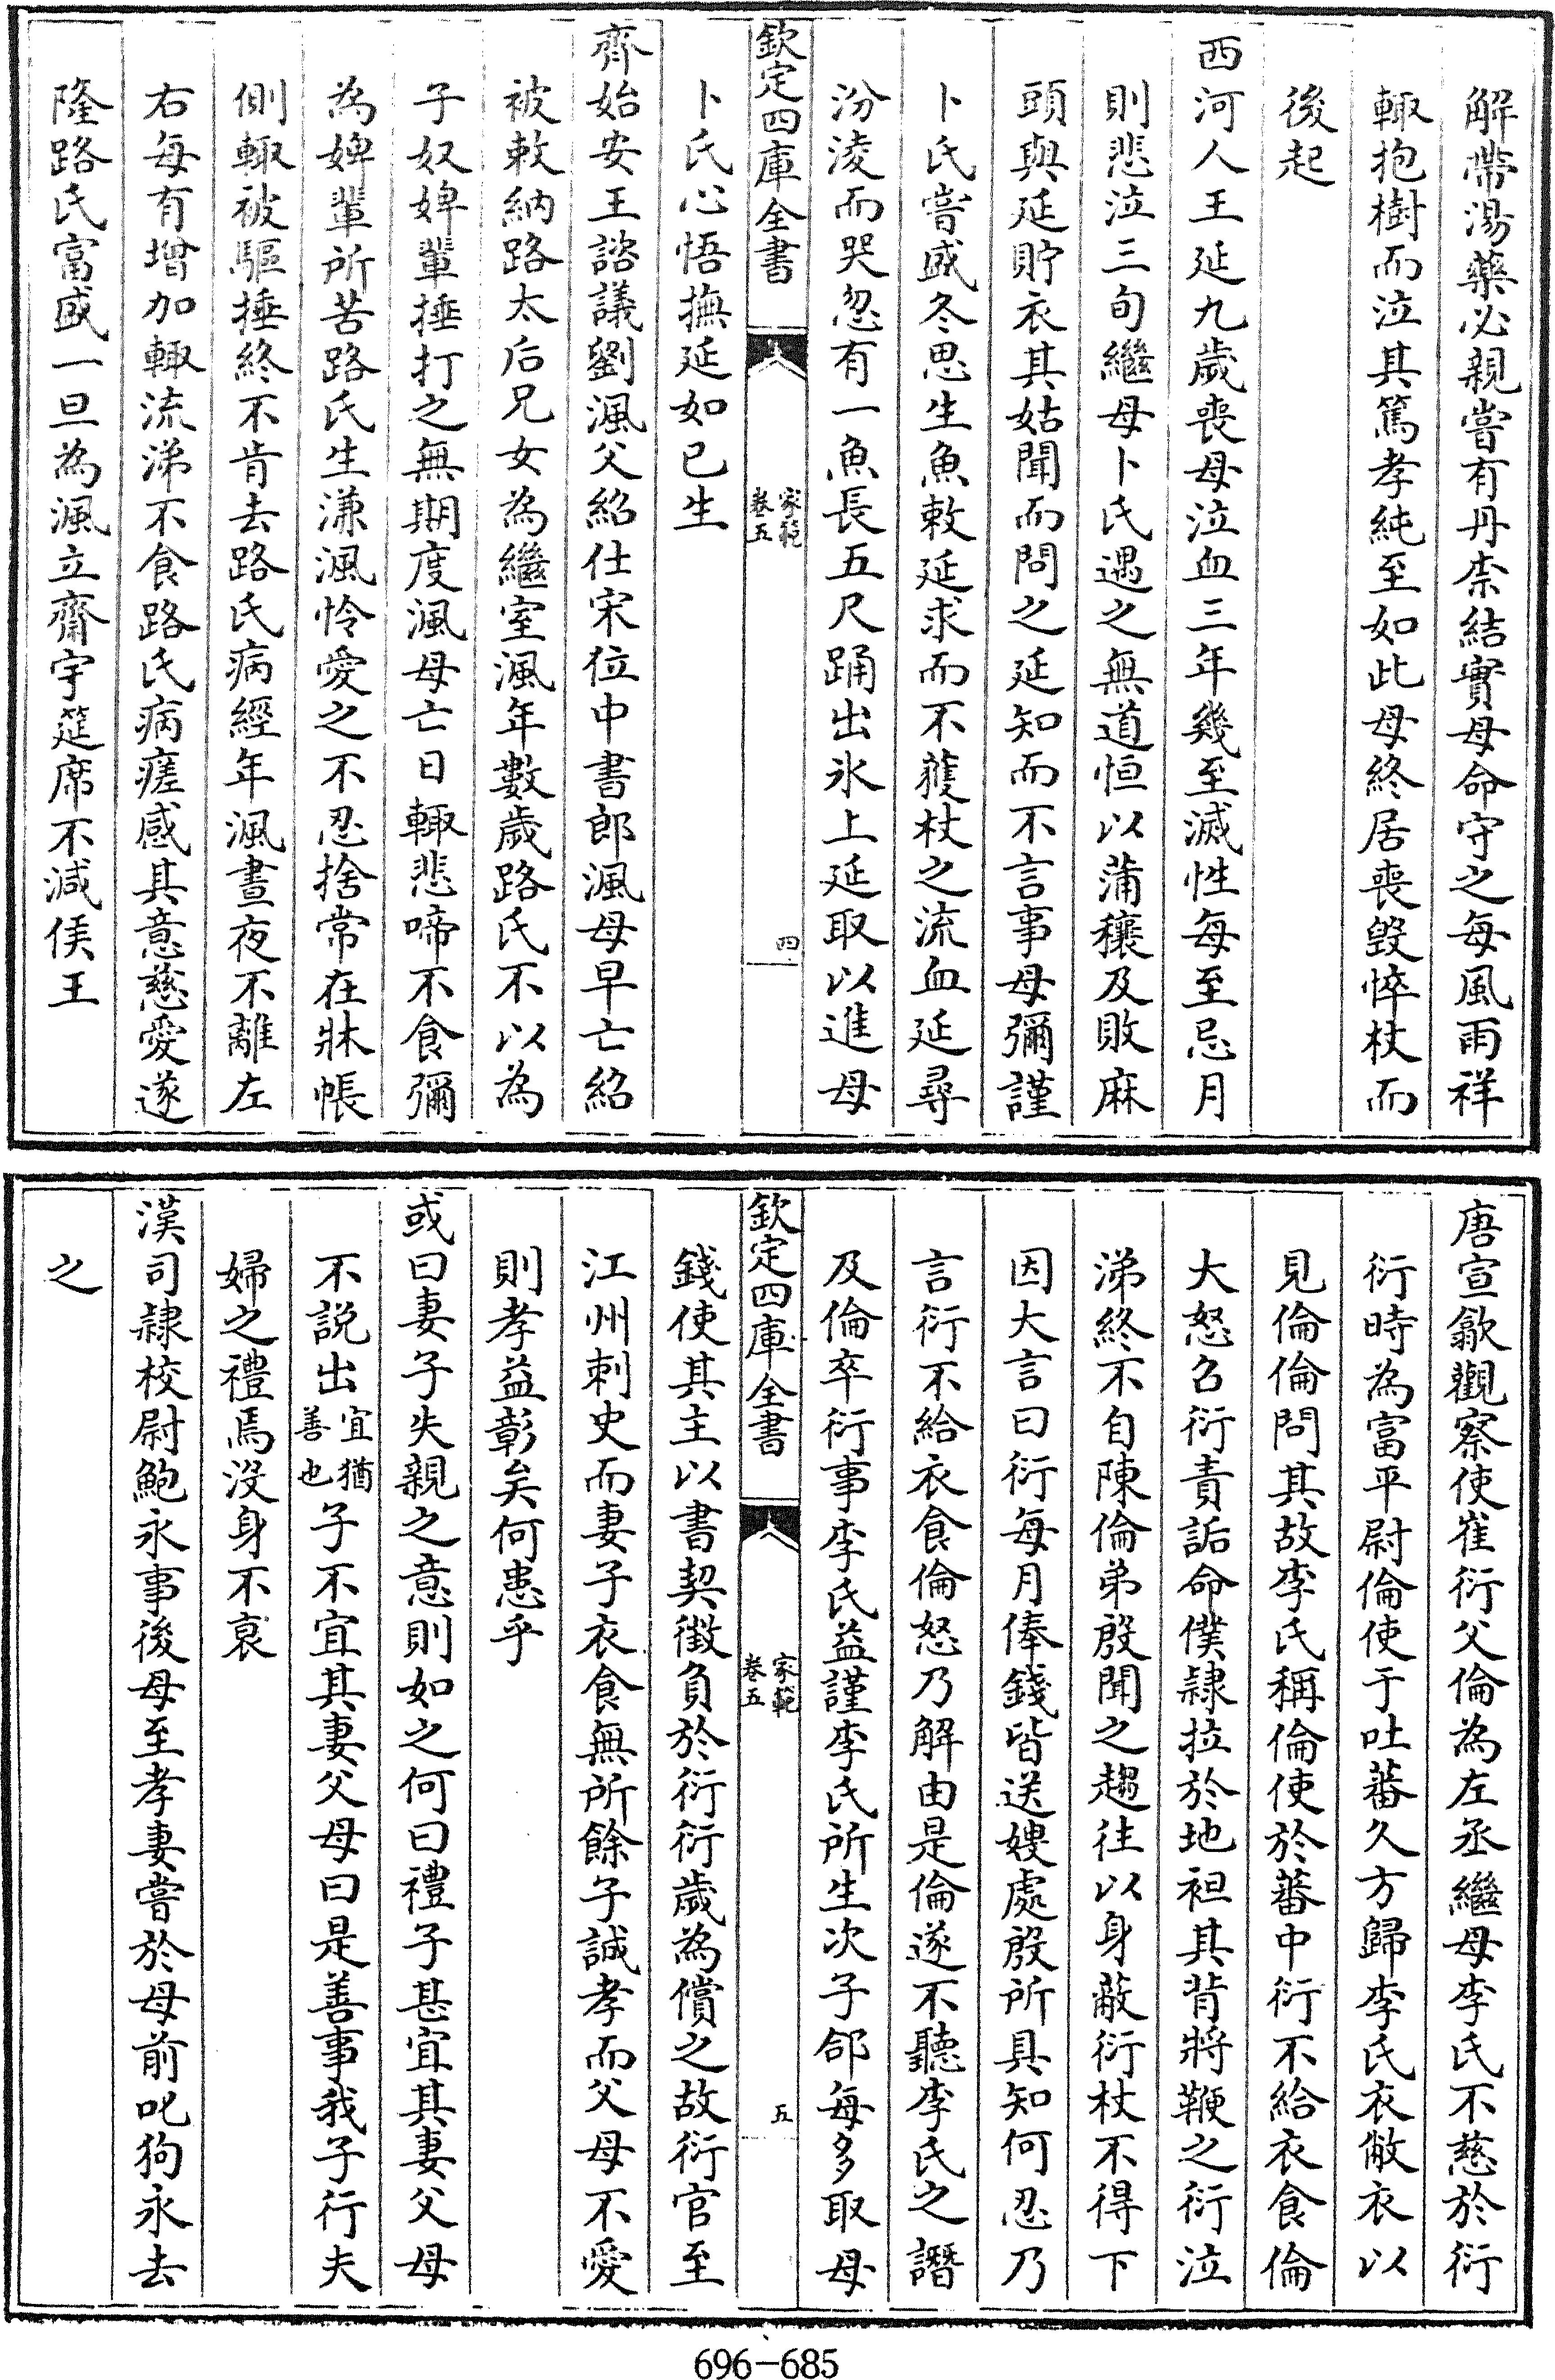 解帶湯藥必親嘗有丹柰結實母命守之每風雨祥
輙抱樹而泣其篤孝純至如此母終居喪毀悴杖而
後起
西河人王延九歲喪母泣血三年幾至滅性每至忌月
則悲泣三旬繼母卜氏遇之無道恒以蒲穰及敗麻
頭與延貯衣其姑聞而問之延知而不言事母彌謹
卜氏嘗盛冬思生魚敕延求而不獲杖之流血延尋
汾淩而哭忽有一魚長五尺踊出氷上延取以進母
欽定四庫全書
家範
卷五
四
卜氏心悟撫延如已生
齊始安王諮議劉渢父紹仕宋位中書郎渢母早亡紹
被敕納路太后兄女為繼室渢年數歲路氏不以為
子奴婢輩捶打之無期度渢母亡日輙悲啼不食彌
為婢輩所苦路氏生溓渢怜愛之不忍捨常在牀帳
側輙被驅捶終不肯去路氏病經年渢晝夜不離左
右每有增加輙流涕不食路氏病瘥感其意慈愛遂
隆路氏富盛一旦為渢立齋宇筵席不減侯王
唐宣歙觀察使崔衍父倫為左丞繼母李氏不慈於衍
衍時為富平尉倫使于吐蕃久方歸李氏衣敝衣以
見倫倫問其故李氏稱倫使於蕃中衍不給衣食倫
大怒召衍責詬命僕隷拉於地袒其背將鞭之衍泣
涕終不自陳倫弟殷聞之趨往以身蔽衍杖不得下
因大言曰衍每月俸錢皆送嫂處殷所具知何忍乃
言衍不給衣食倫怒乃解由是倫遂不聽李氏之譖
及倫卒衍事李氏益謹李氏所生次子郃每多取母
欽定四庫全書
家範
卷五
五
錢使其主以書契徵負於衍衍歲為償之故衍官至
江州刺史而妻子衣食無所餘子誠孝而父母不愛
則孝益彰矣何患乎
或曰妻子失親之意則如之何曰禮子甚宜其妻父母
不説出宜猶善也子不宜其妻父母曰是善事我子行夫
婦之禮焉沒身不衰
漢司隷校尉鮑永事後母至孝妻嘗於母前叱狗永去
之
696-685